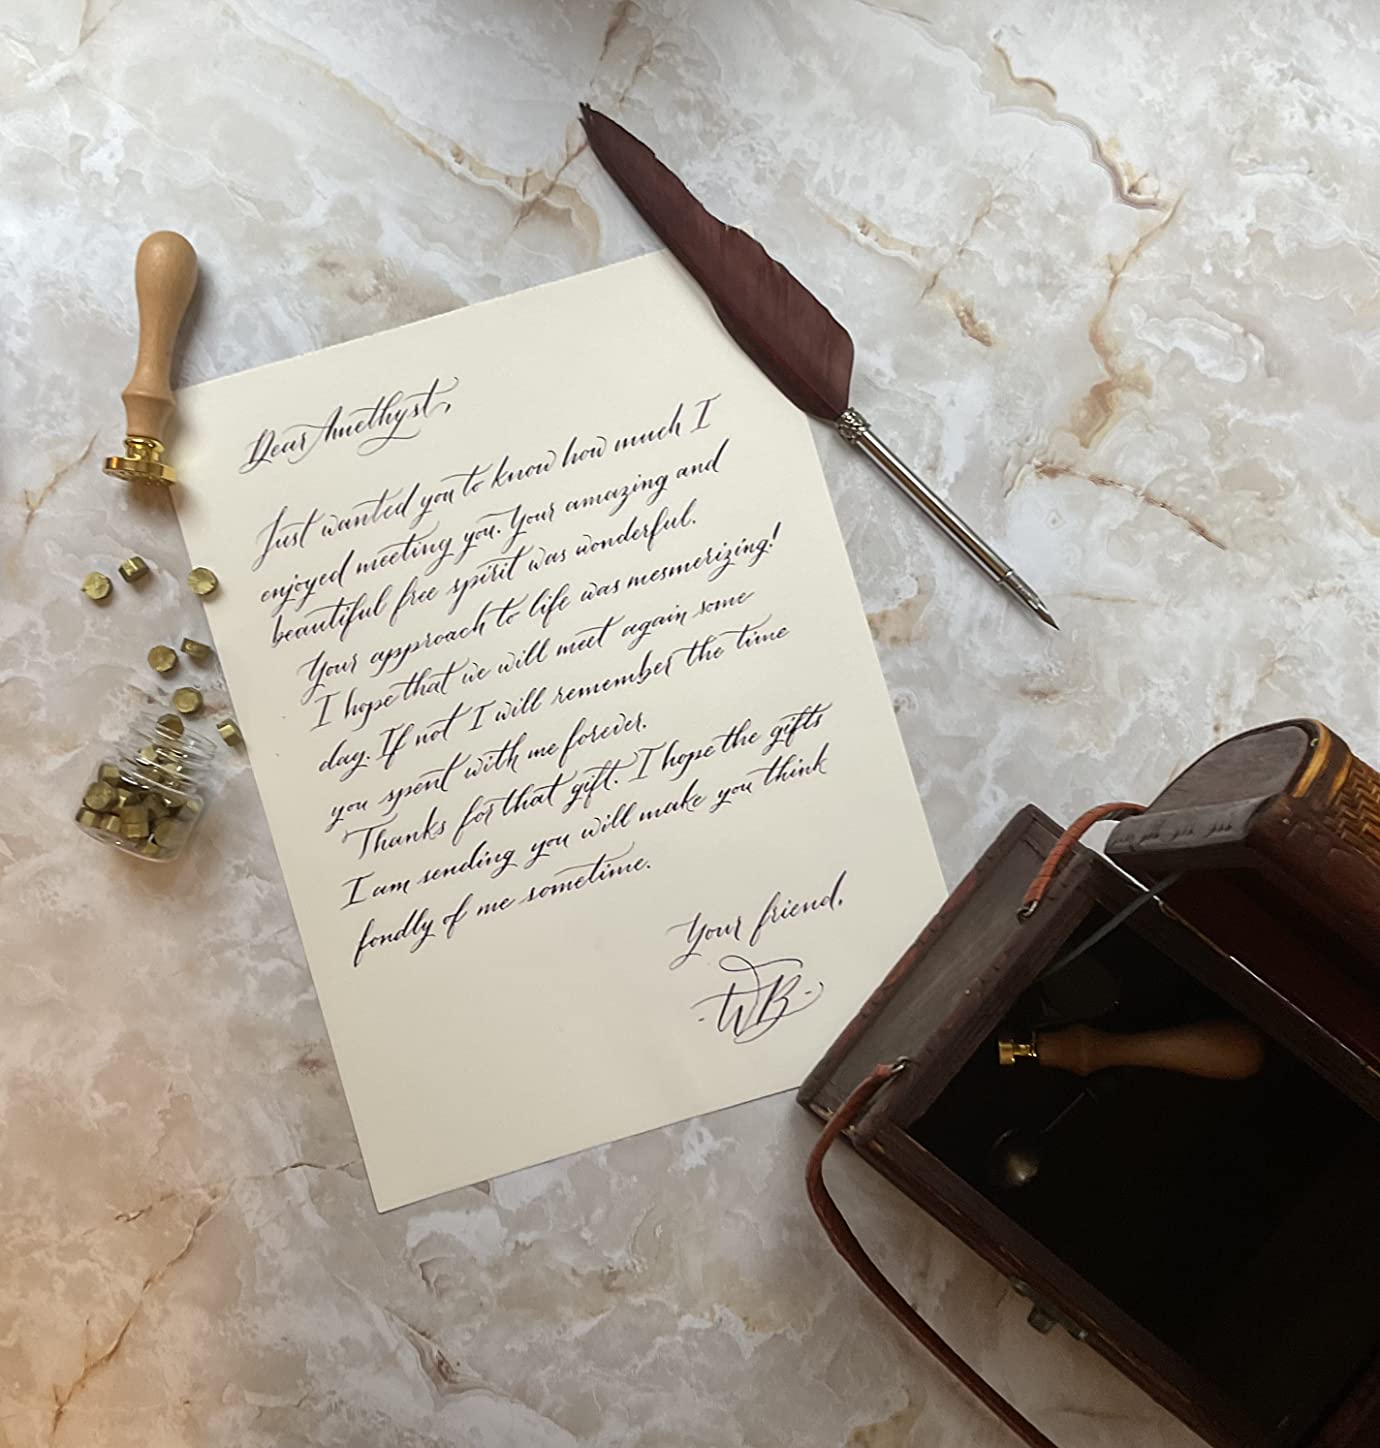 Dear Amethyst,
Just wanted you to know how much I
enjoyed meeting you. Your amazing and
beautiful free spirit was wonderful.
Your approach to life was mesmerizing!
I hope that we will meet again some
day. If not I will remember the time
you spent with me forever.
Thanks for that gift. I hope the gifts
I am sending you will make you think
fondly of me sometime.
Your friend,
-WB-